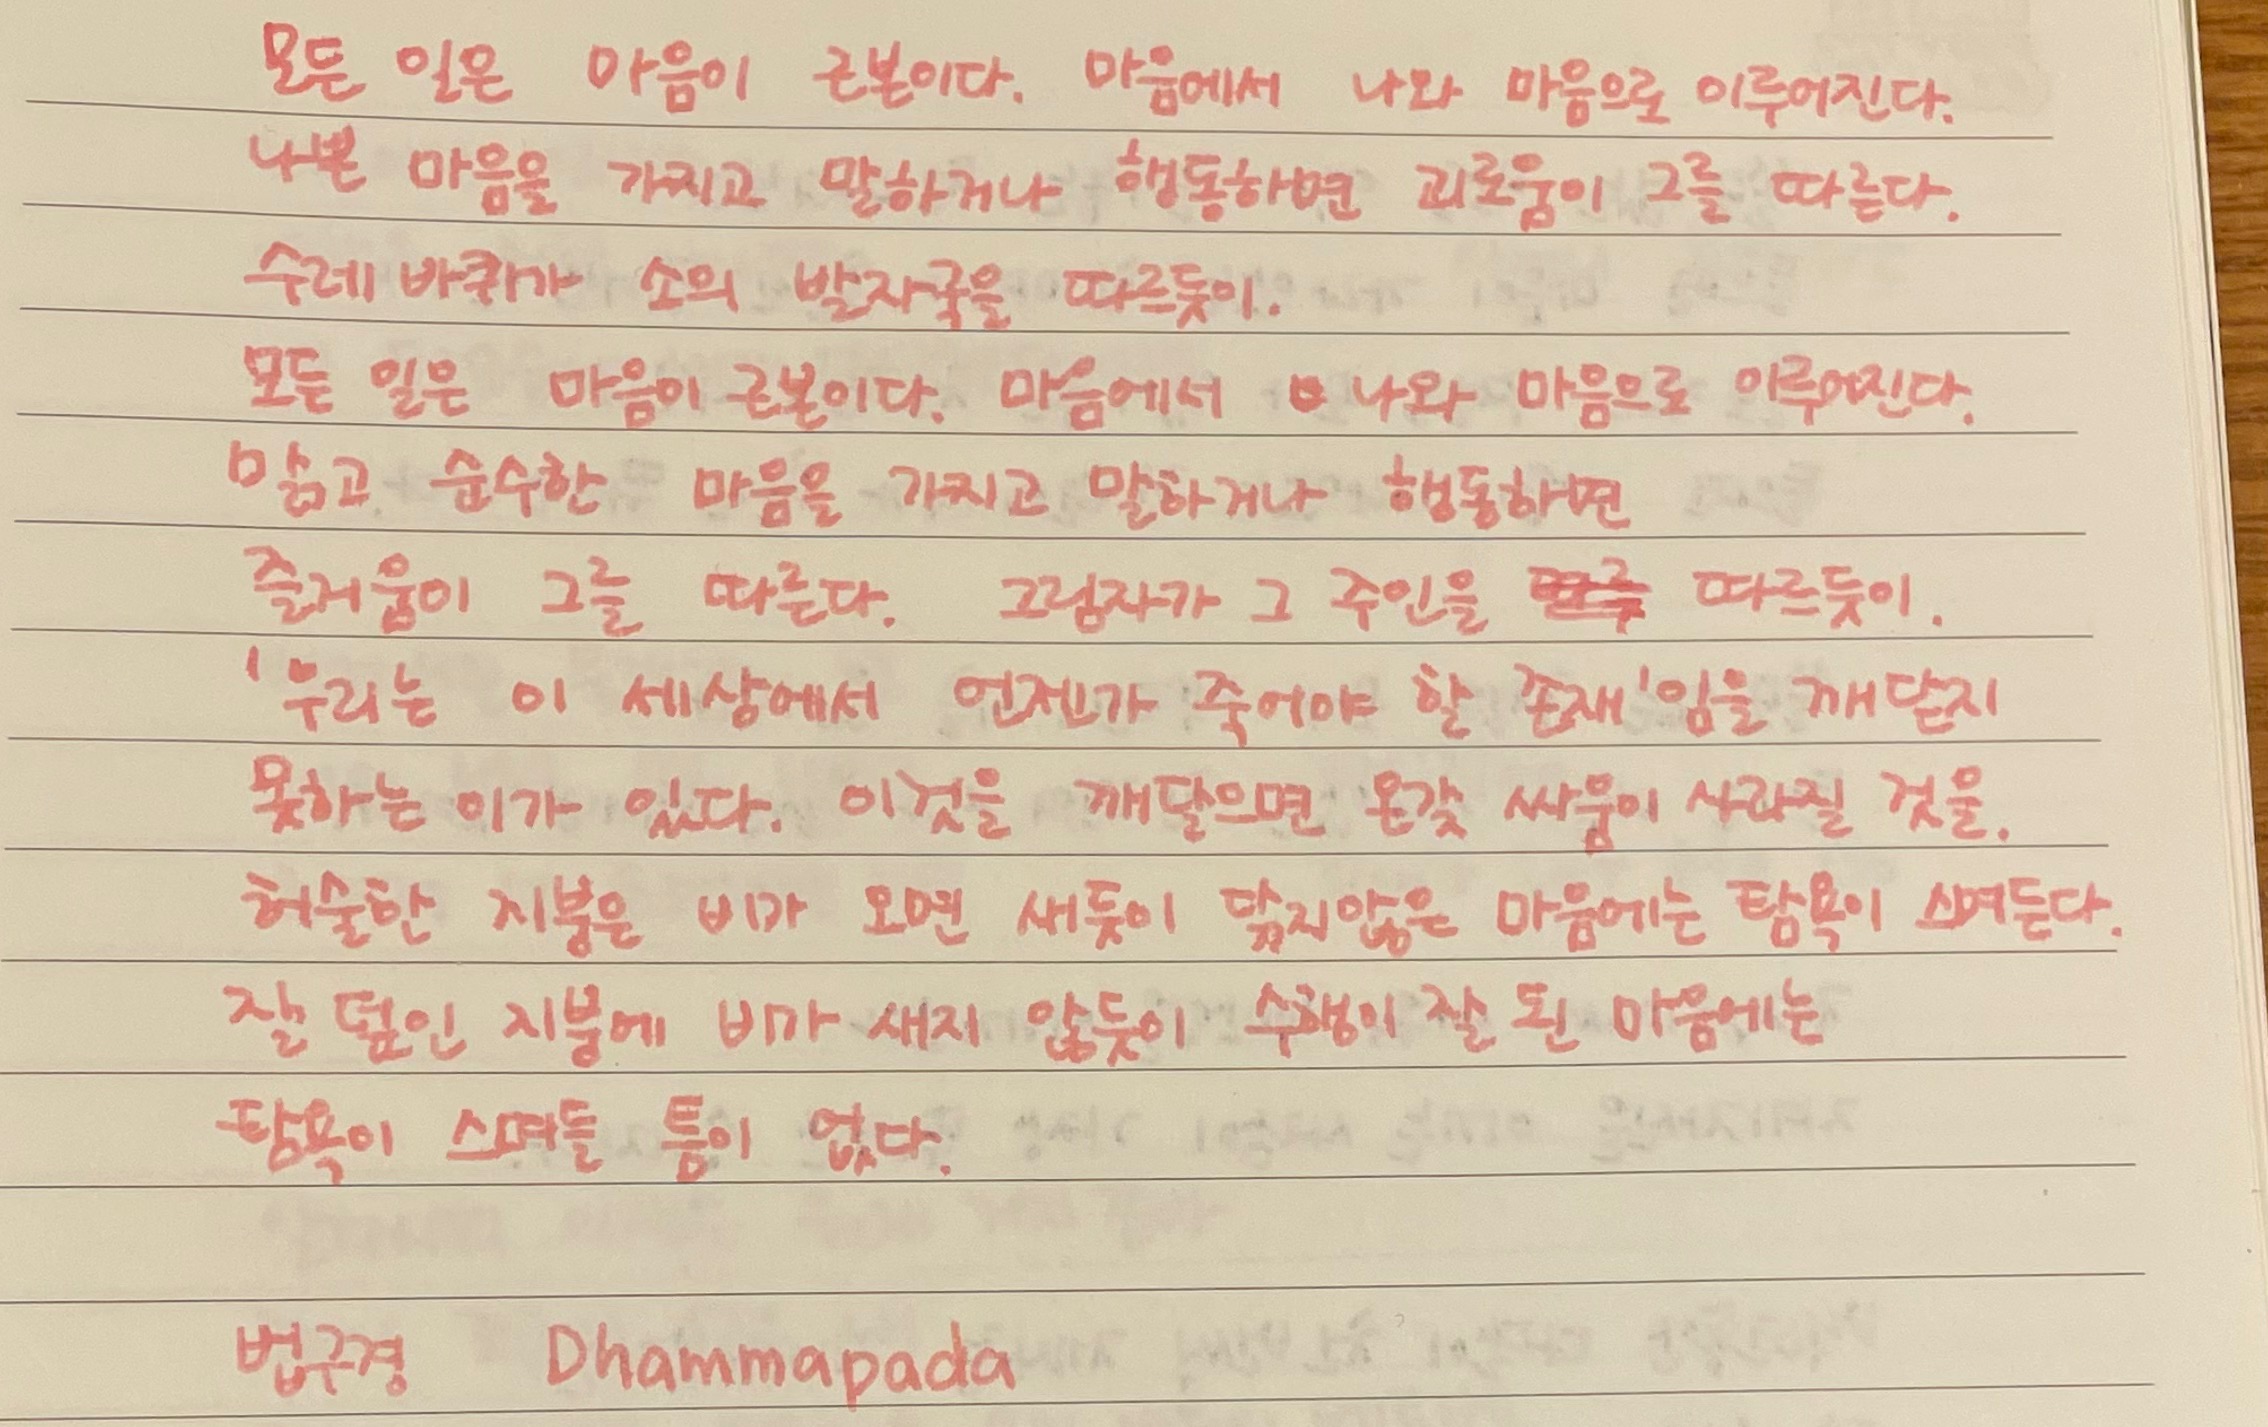 모든 일은 마음이 근본이다. 마음에서 나와 마음으로 이루어진다.
나쁜 마음을 가지고 말하거나 행동하면 괴로움이 그를 따른다.
수레바퀴가 소의 발자국을 따르듯이.
모든 일은 마음이 근본이다. 마음에서 나와 마음으로 이루어진다.
맑고 순수한 마음을 가지고 말하거나 행동하면
즐거움이 그를 따른다. 그림자가 그 주인을 따르듯이.
'우리는 이 세상에서 언젠가 죽어야 할 존재'임을 깨닫지
못하는 이가 있다. 이것을 깨달으면 온갖 싸움이 사라질 것을.
허술한 지붕은 비가 오면 새듯이 닦지않은 마음에는 탐욕이 스며든다.
잘 덮인 지붕에 비가 새지 않듯이 수행이 잘 된 마음에는
탐욕이 스며들 틈이 없다.
법구경 Dhammapada